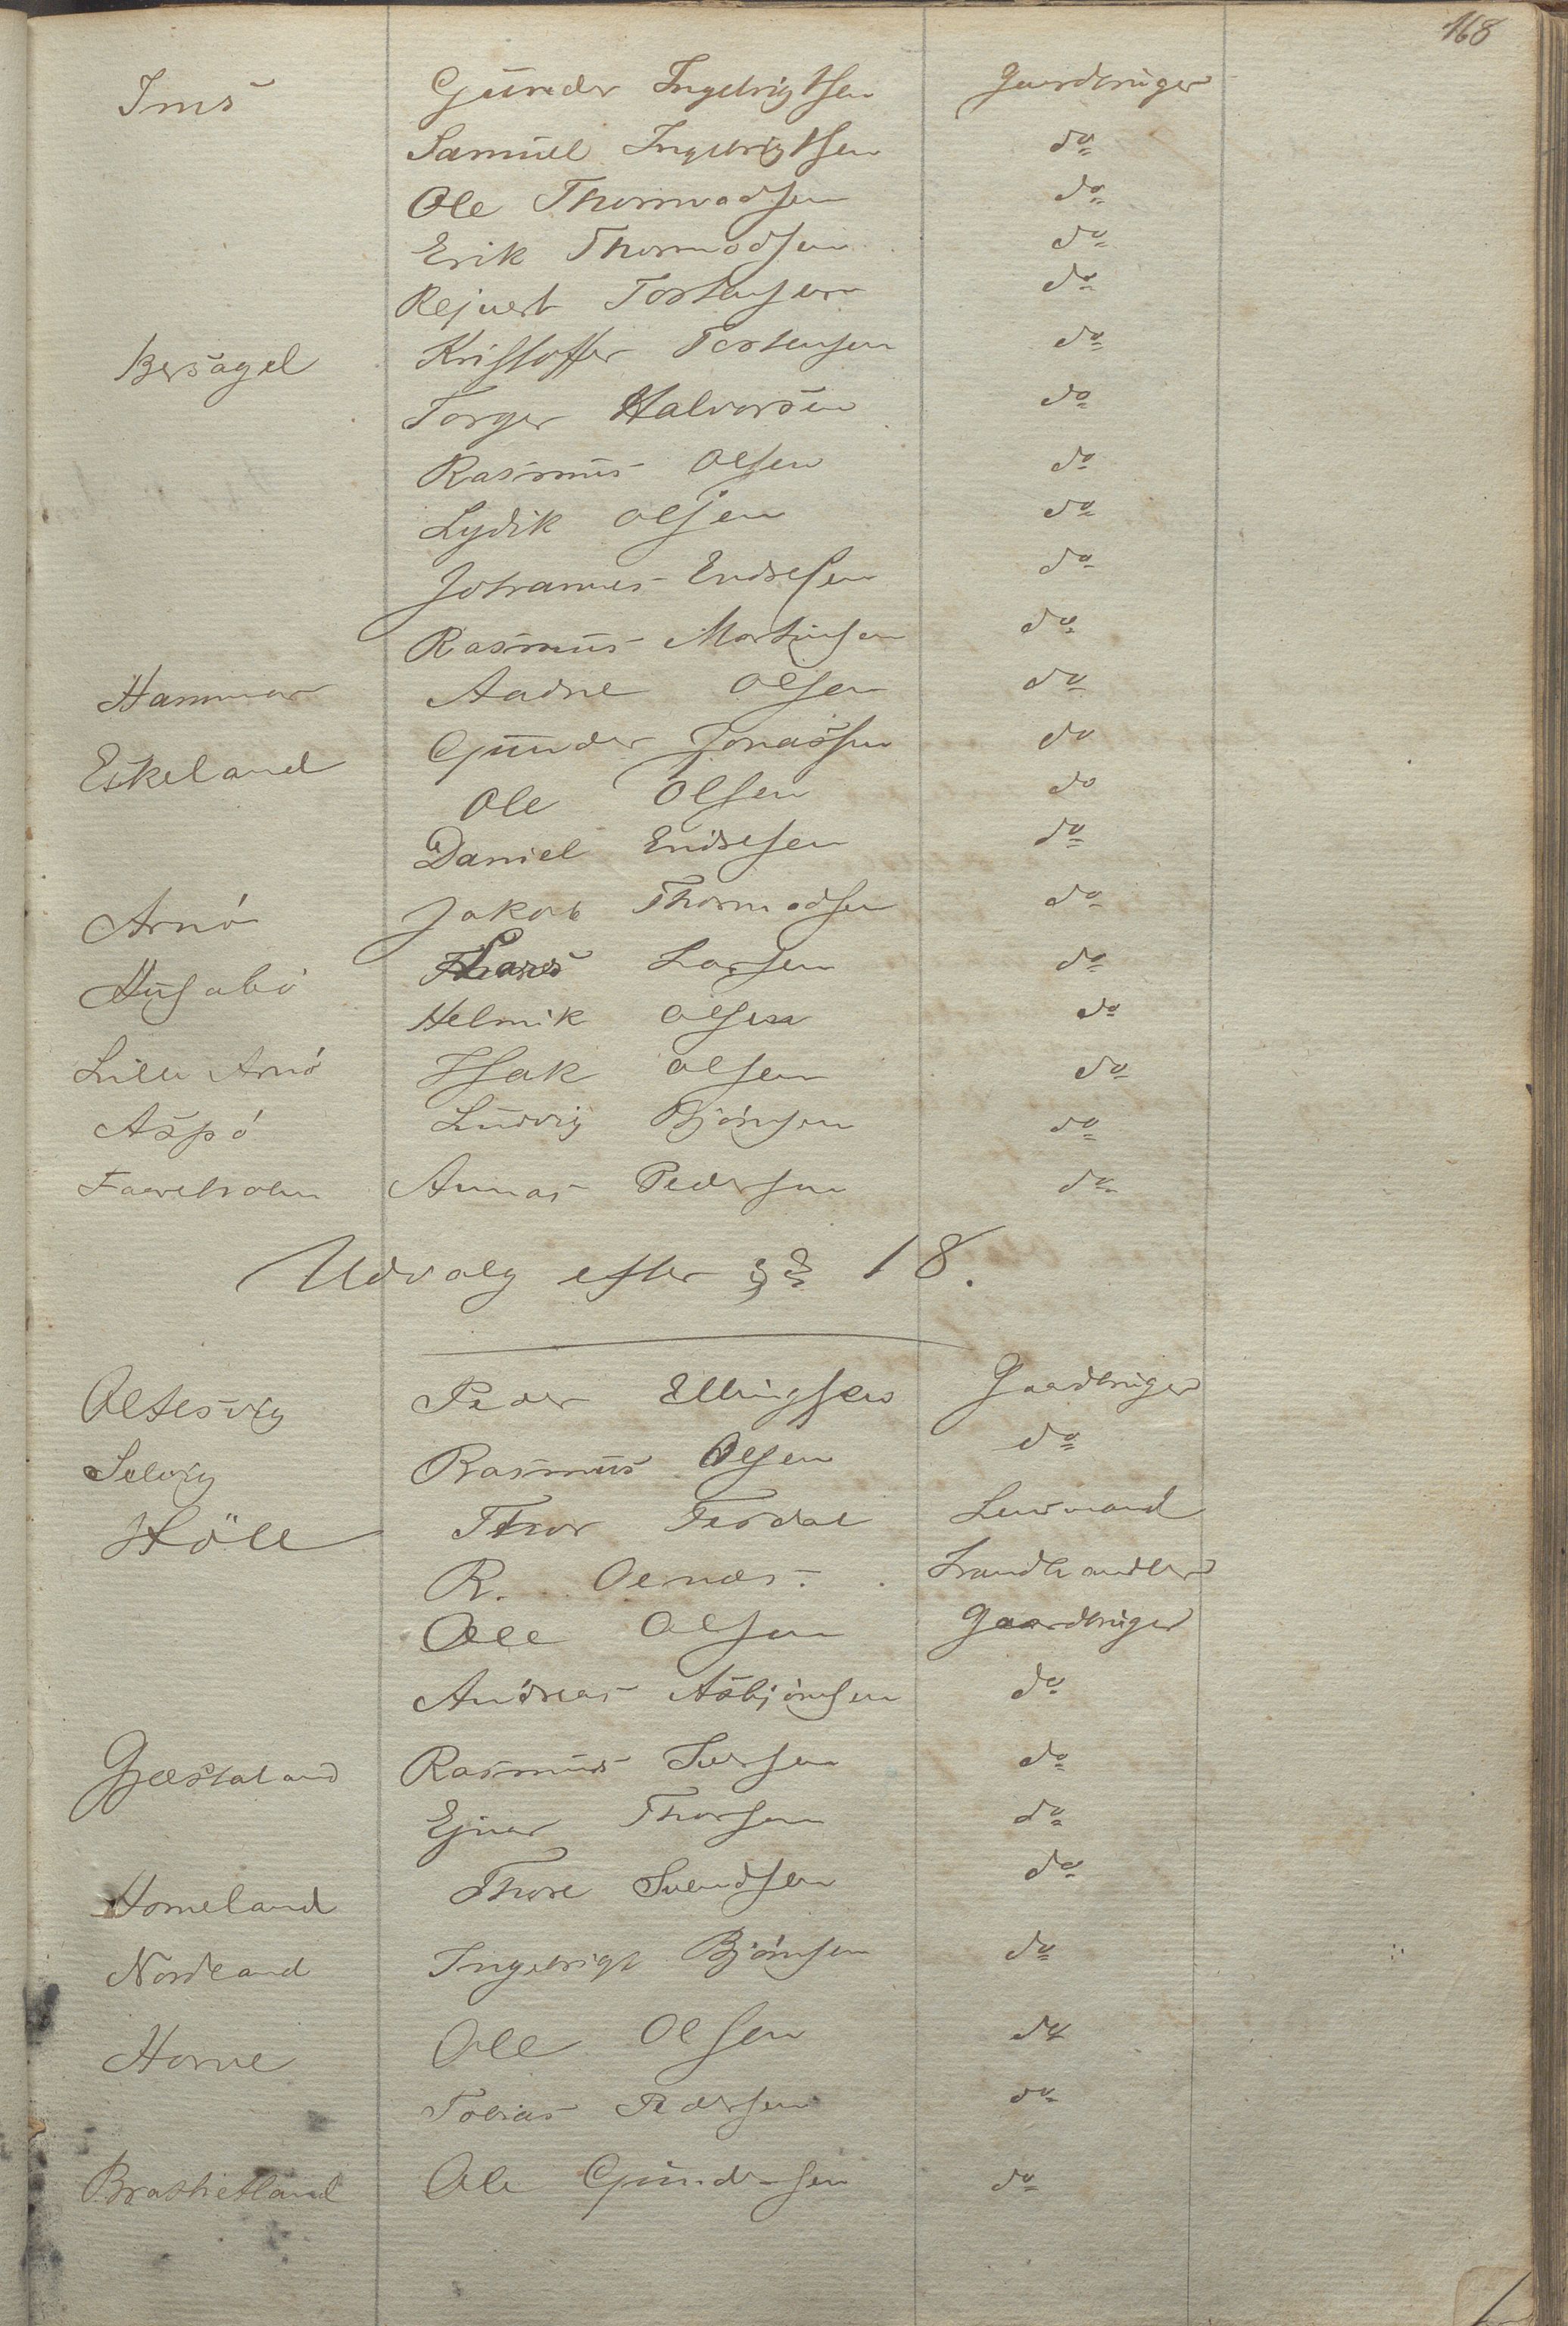 168
Ims Gunder Ingebrigtsen Gaardbruger
Samuel Ingebrigtsen do
Ole Thormodsen do
Erik Thormodsen do
Rejnert Torstensen do
Bersagel Kristoffer Torstensen do
Torger Halvorsen do
Rasmus Olsen do
Lydik Olsen do
Johannes Endresen do
Rasmus Mortensen do
Hammar Aadne Olsen do
Eskeland Gunder Jonassen do
Ole Olsen do
Daniel Endresen do
Arnö Jakob Thormodsen do
Husabö Lars Larsen do
Helmik Olsen do
Lille Arnö Isak Olsen do
Aspö Ludvig Björnsen do
Faareholm Annas Pedersen do
Udvalg efter § 18.
Oltesvig Peder Ellingsen Gaardbruger
Selvig Rasmus Olsen do
Höle Thor Fredal Lensmand
R. Oenes. Landhandler
Ole Olsen Gaardbruger
Andreas Asbjörnsen do
Gjæstaland Rasmus Iversen do
Ejner Thorsen do
Homeland Thore Svendsen do
Nordland Ingebrigt Björnsen do
Horne Ole Olsen do
Tobias Pedersen do
Brathetland Ole Gundersen do